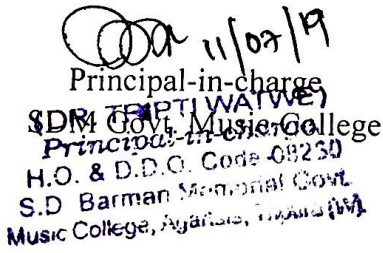 11/07/19
Principal-in-charge
(DR. TRIPTI WATWE)
SDM Govt. Music College
Principal-in-charge
H.O. & D.D.O. Code-08230
S.D Barman Memorial Govt.
Music College, Agartala, Tripura (W).